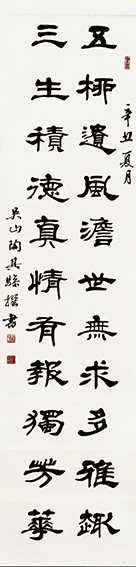 辛丑夏月
五柳遺風澹世無求多雅趣
三生積德真情有報獨芳華
吴山陶其駱撰書